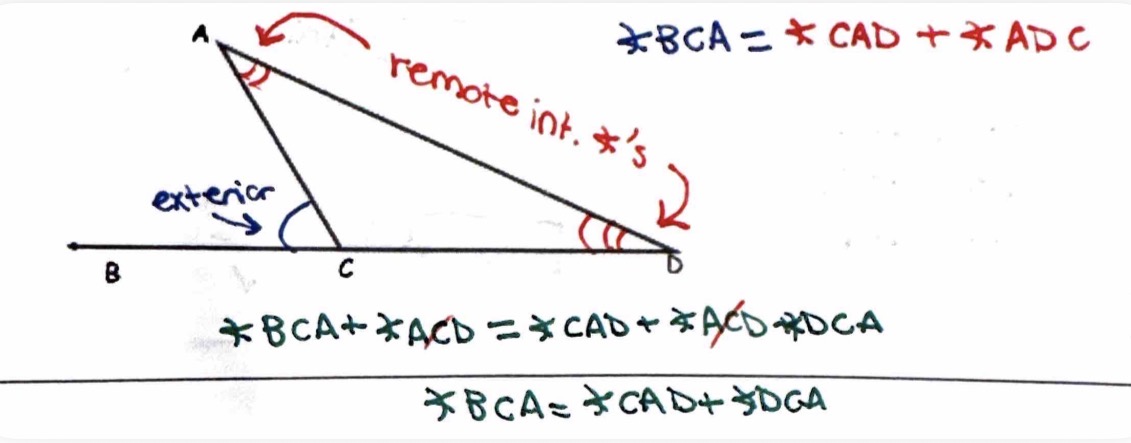 A
∡BCA = ∡CAD + ∡ADC
remote int. ∡'s
exterior
B
C
D
∡BCA + ∡ACD = ∡CAD + ∡ACD + ∡DCA
∡BCA = ∡CAD + ∡DCA